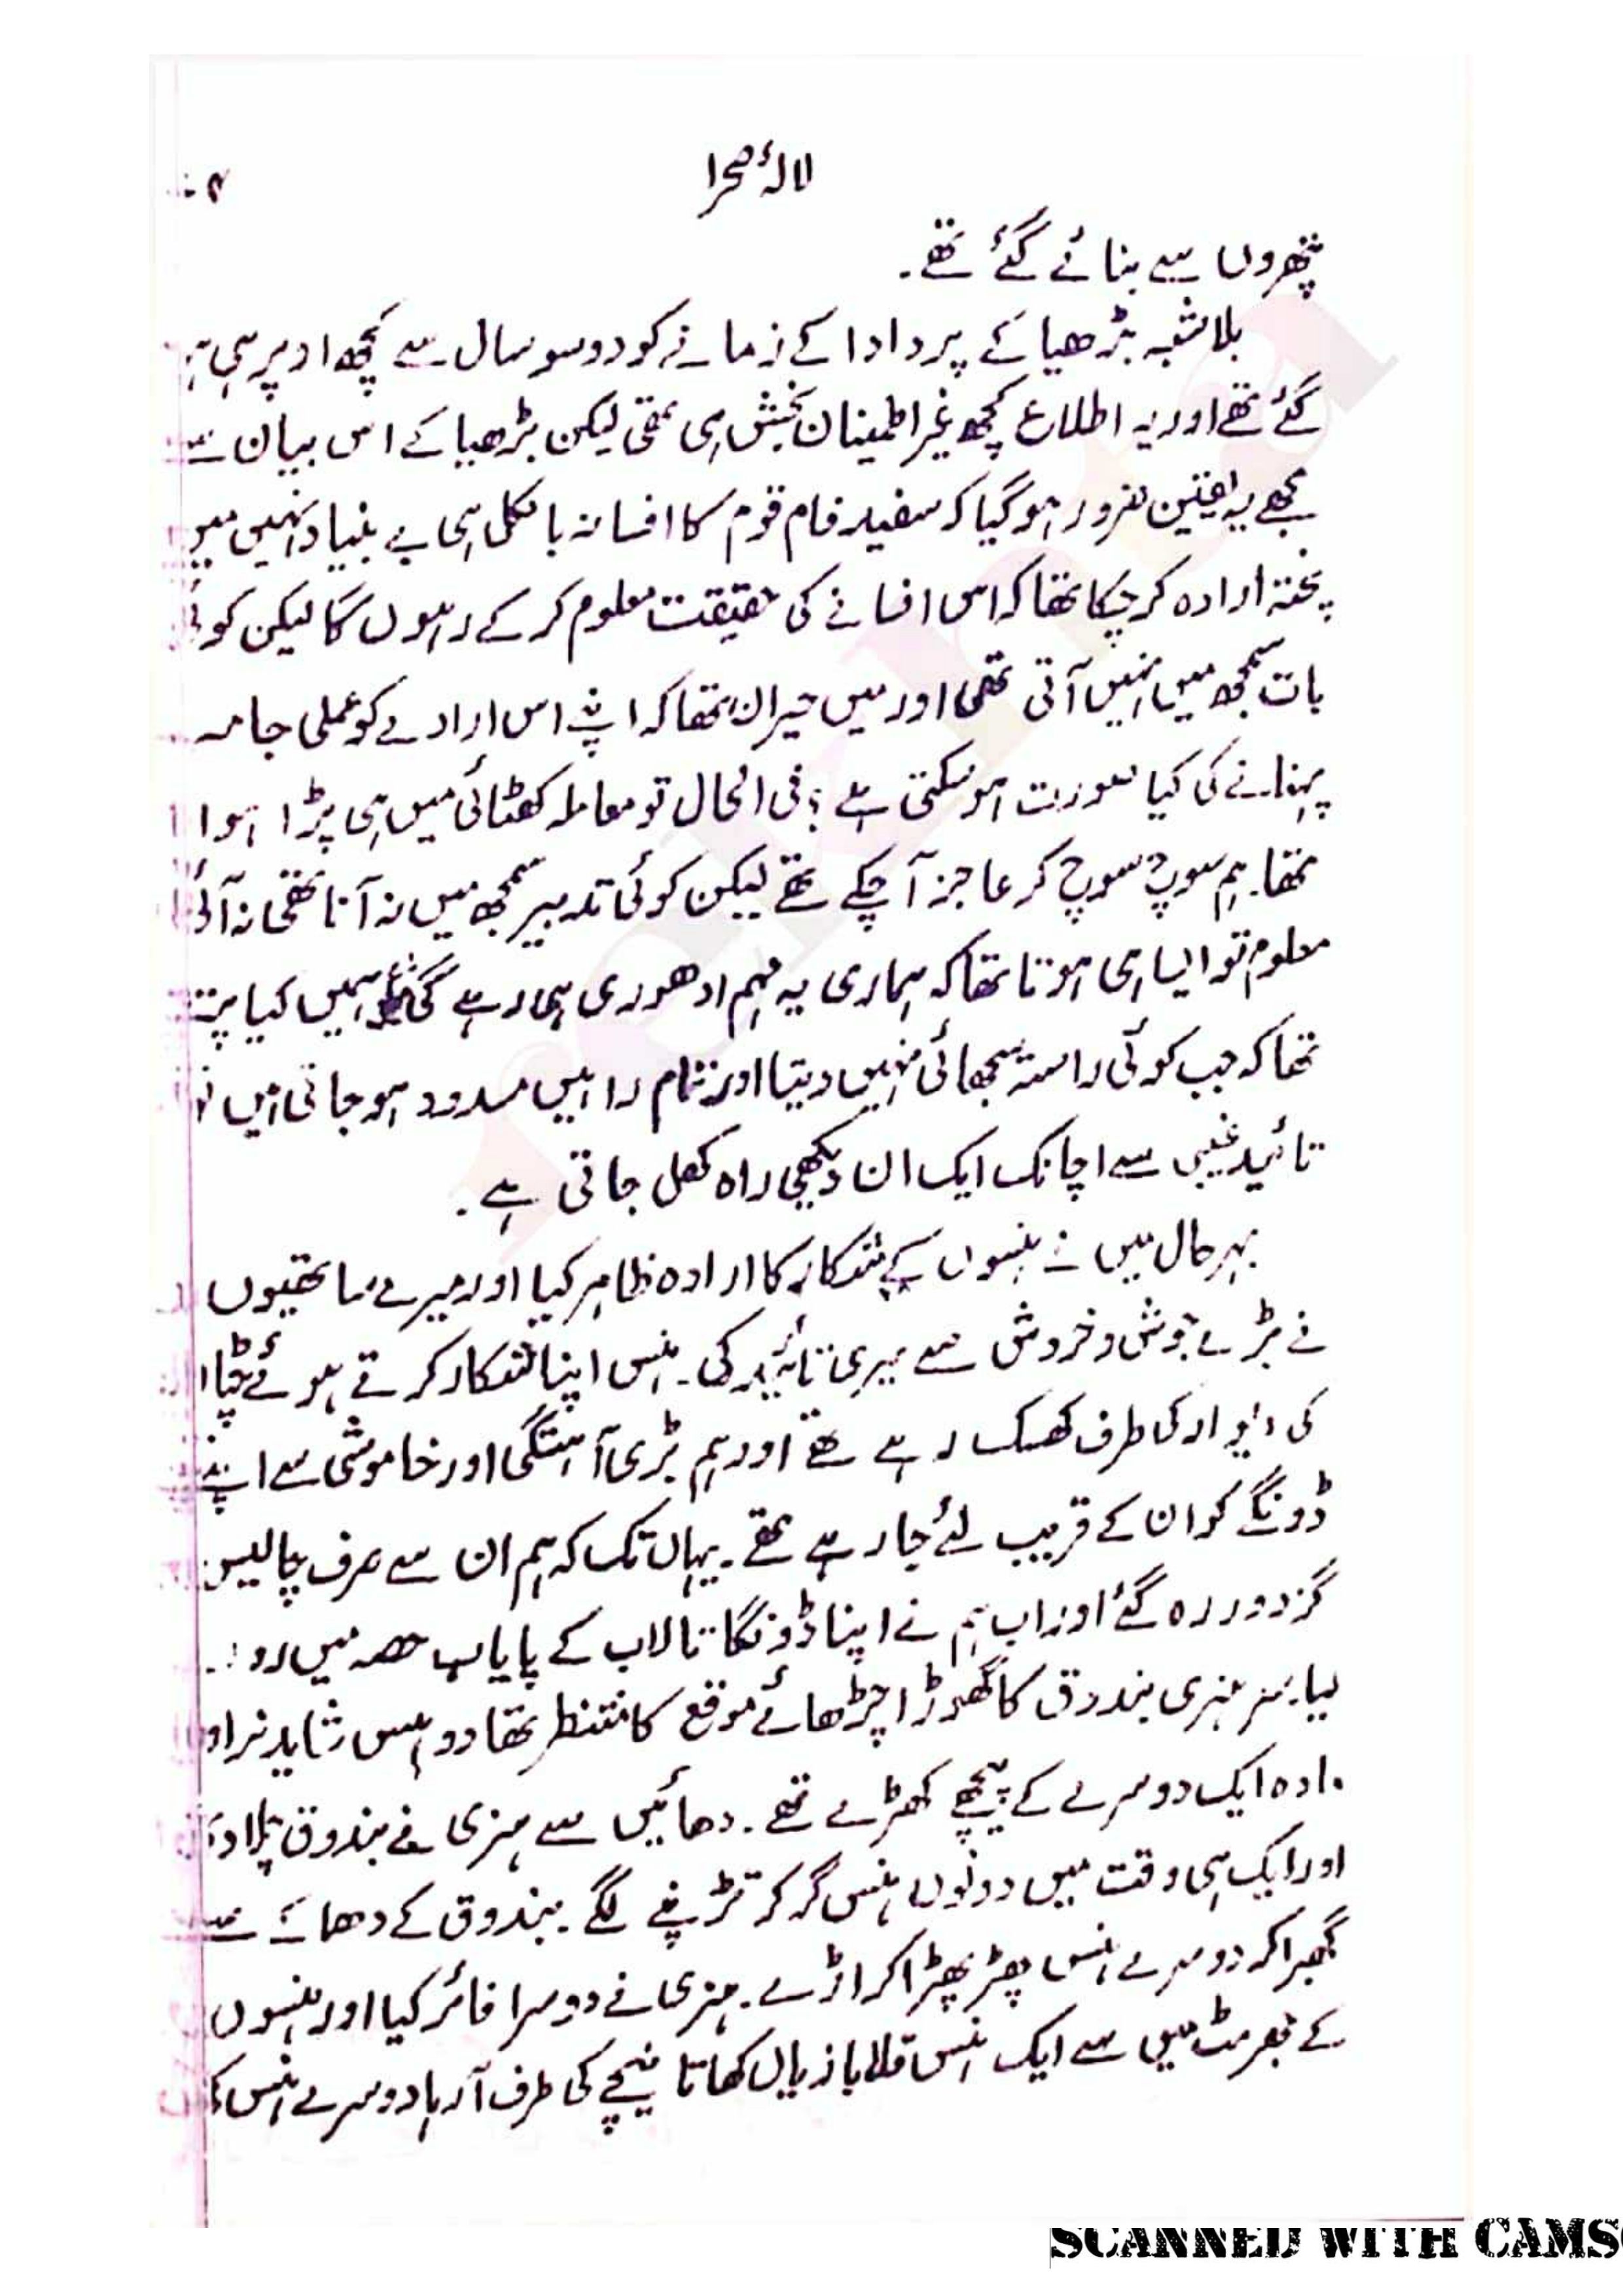 لالۂ صحرا
پتھروں سے بنائے گئے تھے۔
بلاشبہ بڑھیا کے پردادا کے زمانے کو دو سو سال سے کچھ اوپر ہی
گئے تھے اور یہ اطلاع کچھ غیر اطمینان بخش ہی تھی لیکن بڑھیا کے اس بیان سے
مجھے یہ یقین ضرور ہو گیا کہ سفید فام قوم کا افسانہ بالکل ہی بے بنیاد نہیں میں
پختہ ارادہ کر چکا تھا کہ اس افسانے کی حقیقت معلوم کر کے رہوں گا لیکن کوئی
بات سمجھ میں نہیں آتی تھی اور میں حیران تھا کہ اپنے اس ارادے کو عملی جامہ
پہنانے کی کیا صورت ہو سکتی ہے ؟ فی الحال تو معاملہ کھٹائی میں ہی پڑا ہوا
تھا۔ ہم سوچ سوچ کر عاجز آ چکے تھے لیکن کوئی تدبیر سمجھ میں نہ آنا تھی نہ آئی
معلوم تو ایسا ہی ہوتا تھا کہ ہماری یہ مہم ادھوری ہی رہے گی ہمیں کیا پتہ
تھا کہ جب کوئی راستہ سجھائی نہیں دیتا اور تمام راہیں مسدود ہو جاتی ہیں تو
تائید غیبی سے اچانک ایک ان دیکھی راہ کھل جاتی ہے۔
بہرحال میں نے ہنسوں کے شکار کا ارادہ ظاہر کیا اور میرے ساتھیوں
نے بڑے جوش و خروش سے میری تائید کی۔ ہنس اپنا شکار کرتے ہوئے چٹان
کی دیوار کی طرف کھسک رہے تھے اور ہم بڑی آہستگی اور خاموشی سے اپنے
ڈونگے کو ان کے قریب لئے جا رہے تھے۔ یہاں تک کہ ہم ان سے صرف چالیس
گز دور رہ گئے اور اب ہم نے اپنا ڈونگا تالاب کے پایاب حصہ میں روک
لیا۔ سر ہنری بندوق کا گھوڑا چڑھائے موقع کا منتظر تھا دو ہنس شاید نر اور
مادہ ایک دوسرے کے پیچھے کھڑے تھے۔ دھائیں سے ہنری نے بندوق چلا دی
اور ایک ہی وقت میں دونوں ہنس گر کر تڑپنے لگے۔ بندوق کے دھماکے سے
گھبرا کر دوسرے ہنس پھڑپھڑا کر اڑے۔ ہنری نے دوسرا فائر کیا اور ہنسوں
کے جھرمٹ میں سے ایک ہنس قلابازیاں کھاتا نیچے کی طرف آ رہا دوسرے ہنس
SCANNED WITH CAMS